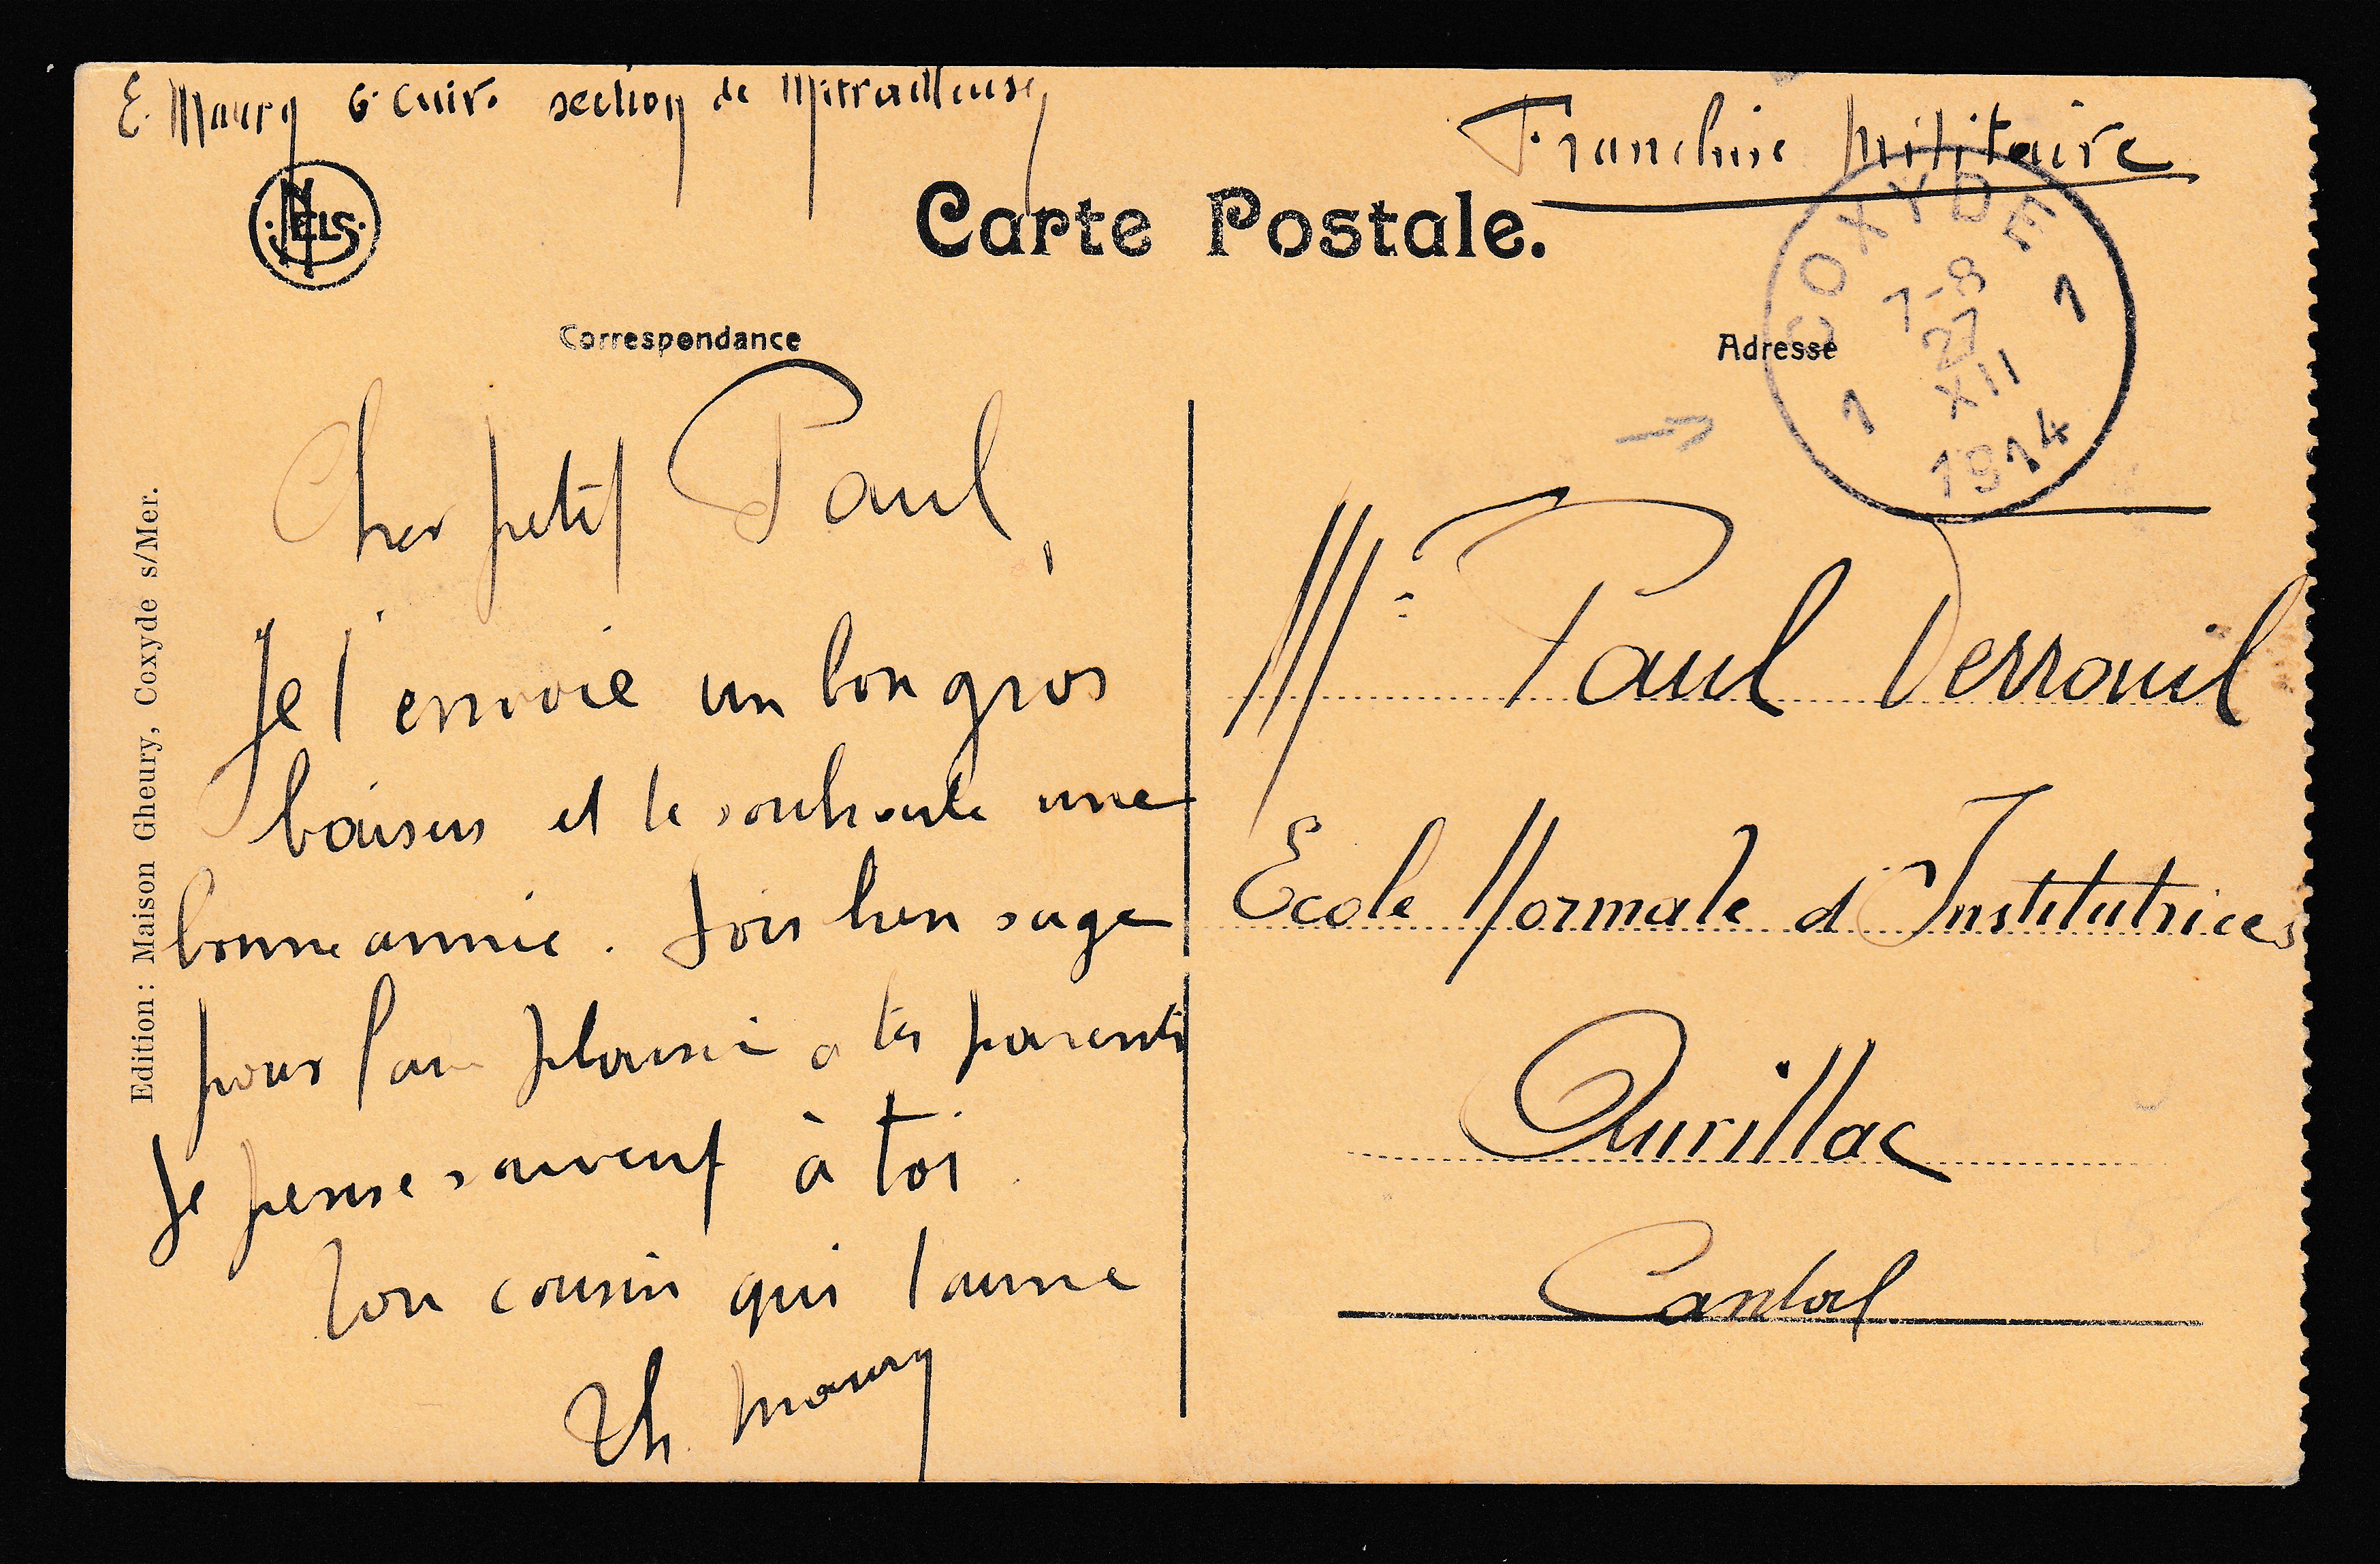 E. Maury 6e Cuir. section de Mitrailleuses
Franchise Militaire
NELS
Carte Postale.
COXYDE
7-8
27
XII
1914
1 1
Correspondance
Adresse
Cher petit Paul,
Je t'envoie un bon gros
baisers et te souhaite une
bonne année. Sois bien sage
pour faire plaisir a tes parents
Je pense souvent à toi.
Ton cousin qui t'aime
Th. Maury
Mr Paul Verrouil
Ecole Normale d'Institutrices
Aurillac
Cantal
Edition: Maison Gheury, Coxyde s/Mer.